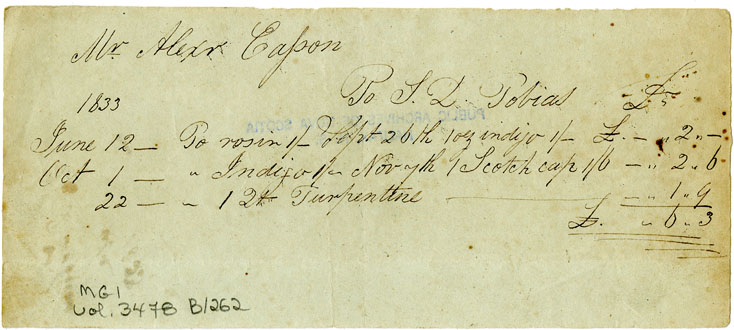 Mr Alexr Eason
To S. D. Tobias Dr
1833
PUBLIC ARCHIVES OF NOVA SCOTIA
June 12 — To rosin 1/- Sept 20th 1oz indigo 1/- £. — " 2 " —
Oct 1 — " Indigo 1/- Nov 7th 1 Scotch cap 1/6 — " 2 " 6
22 — " 1 Qt Turpentine — " 1 " 9
£. " 6 " 3
MG1
Vol. 3478 B/262